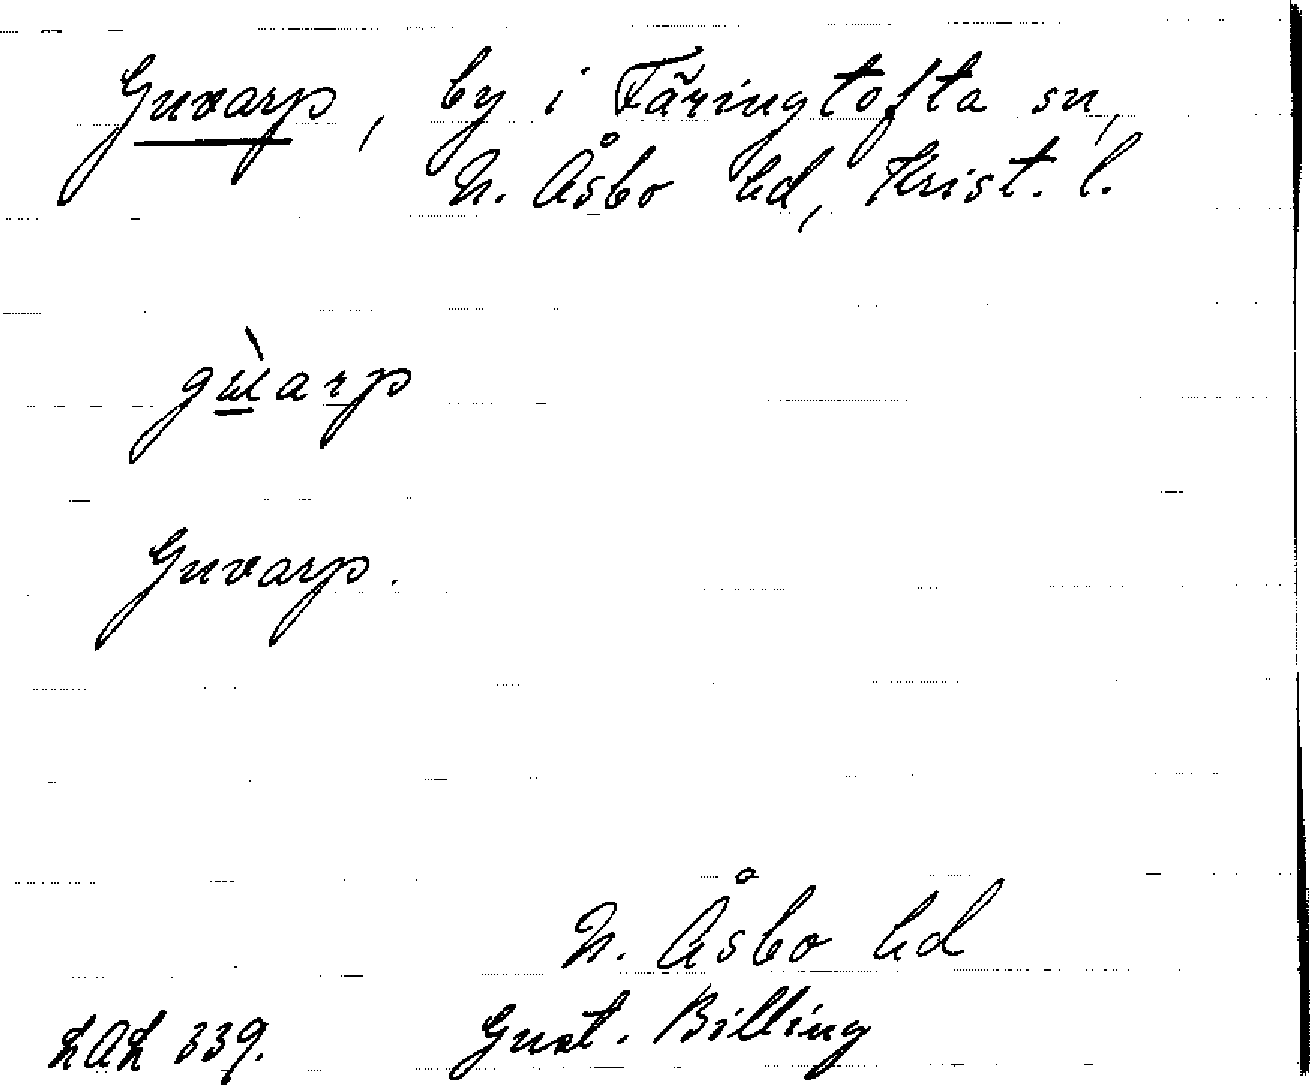 Guvarp, by i Färingtofta sn,
N. Åsbo hd, Krist. l.
gùarp
Guvarp.
N. Åsbo hd
LAL 339. Gust. Billing